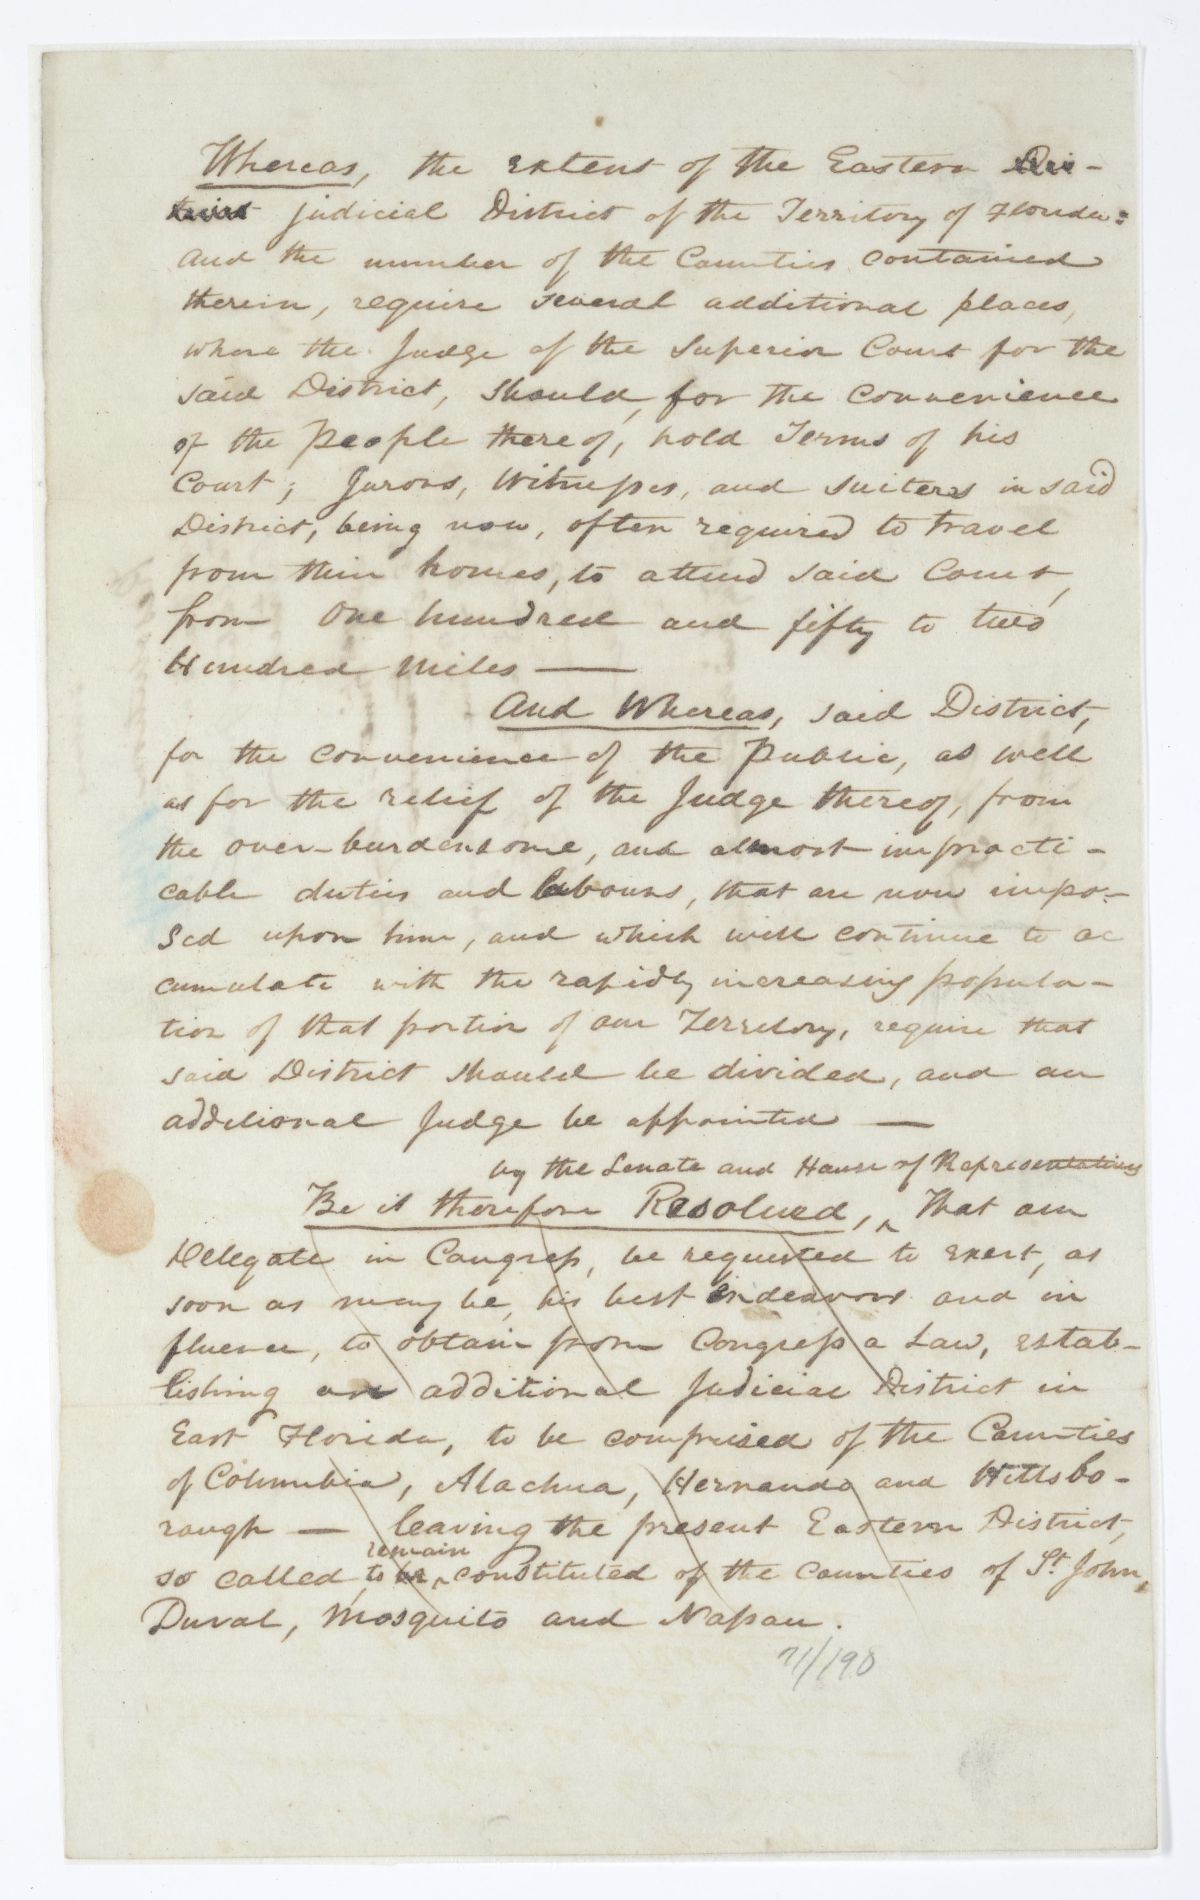 Whereas, the extent of the Eastern Dis-
trict judicial District of the Territory of Florida:
and the number of the Counties contained
therein, require several additional places,
where the Judge of the Superior Court for the
said District, should, for the convenience
of the People thereof, hold Terms of his
Court; Jurors, Witnesses, and suiters in said
District, being now, often required to travel
from their homes, to attend said Court,
from One hundred and fifty to two
Hundred Miles —
And Whereas, said District,
for the convenience of the Public, as well
as for the relief of the Judge thereof, from
the over-burdensome, and almost impracti-
cable duties and labours, that are now impo-
sed upon him, and which will continue to ac
cumulate with the rapidly increasing popula-
tion of that portion of our Territory, require that
said District should be divided, and an
additional Judge be appointed —
by the Senate and House of Representatives
Be it therefore Resolved, ^ That our
Delegate in Congress, be requested to exert, as
soon as may be, his best endeavors and in
fluence, to obtain from Congress a Law, estab-
lishing an additional Judicial District in
East Florida, to be comprised of the Counties
of Columbia, Alachua, Hernando and Hillsbo-
rough — leaving the present Eastern District,
remain
so called, to be ^ constituted of the Counties of St. John,
Duval, Mosquito and Nassau.
71/190